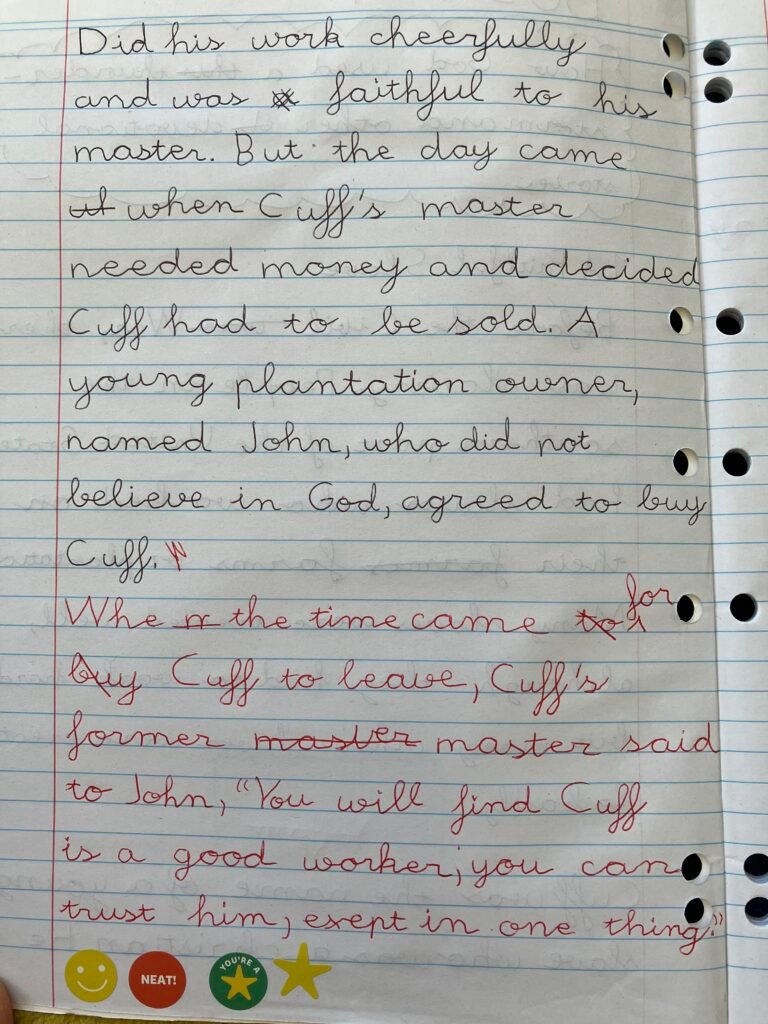 Did his work cheerfully
and was faithful to his
master. But the day came
when Cuff's master
needed money and decided
Cuff had to be sold. A
young plantation owner,
named John, who did not
believe in God, agreed to buy
Cuff.
Whe n the time came to for
buy Cuff to leave, Cuff's
former master master said
to John, "You will find Cuff
is a good worker; you can
trust him, exept in one thing."
NEAT!
YOU'RE A